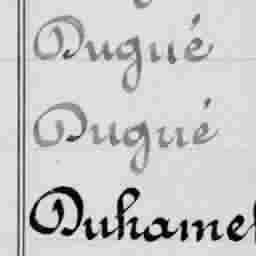 Dugué
Dugué
Duhamel